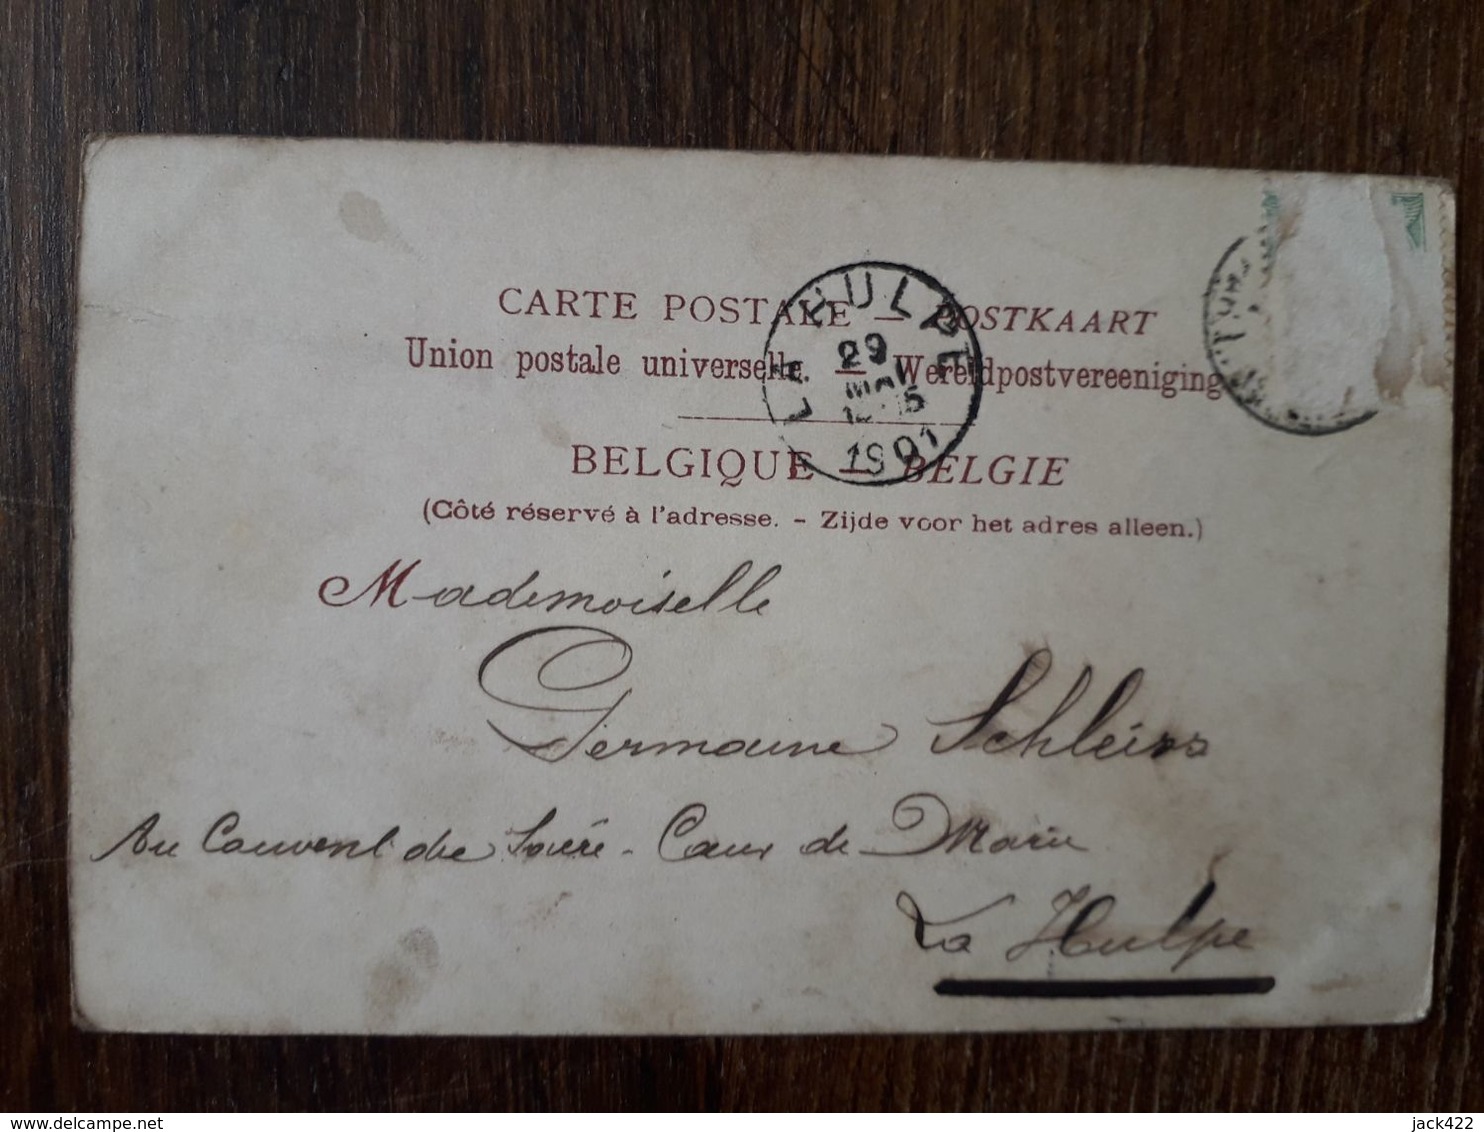 CARTE POSTALE — POSTKAART
Union postale universelle. — Wereldpostvereeniging
LA HULPE
29
MAI
1901
BELGIQUE — BELGIE
(Côté réservé à l'adresse. - Zijde voor het adres alleen.)
Mademoiselle
Germaine Schleiss
Au Couvent du Sacré-Cœur de Marie
La Hulpe
delcampe.net
jack422